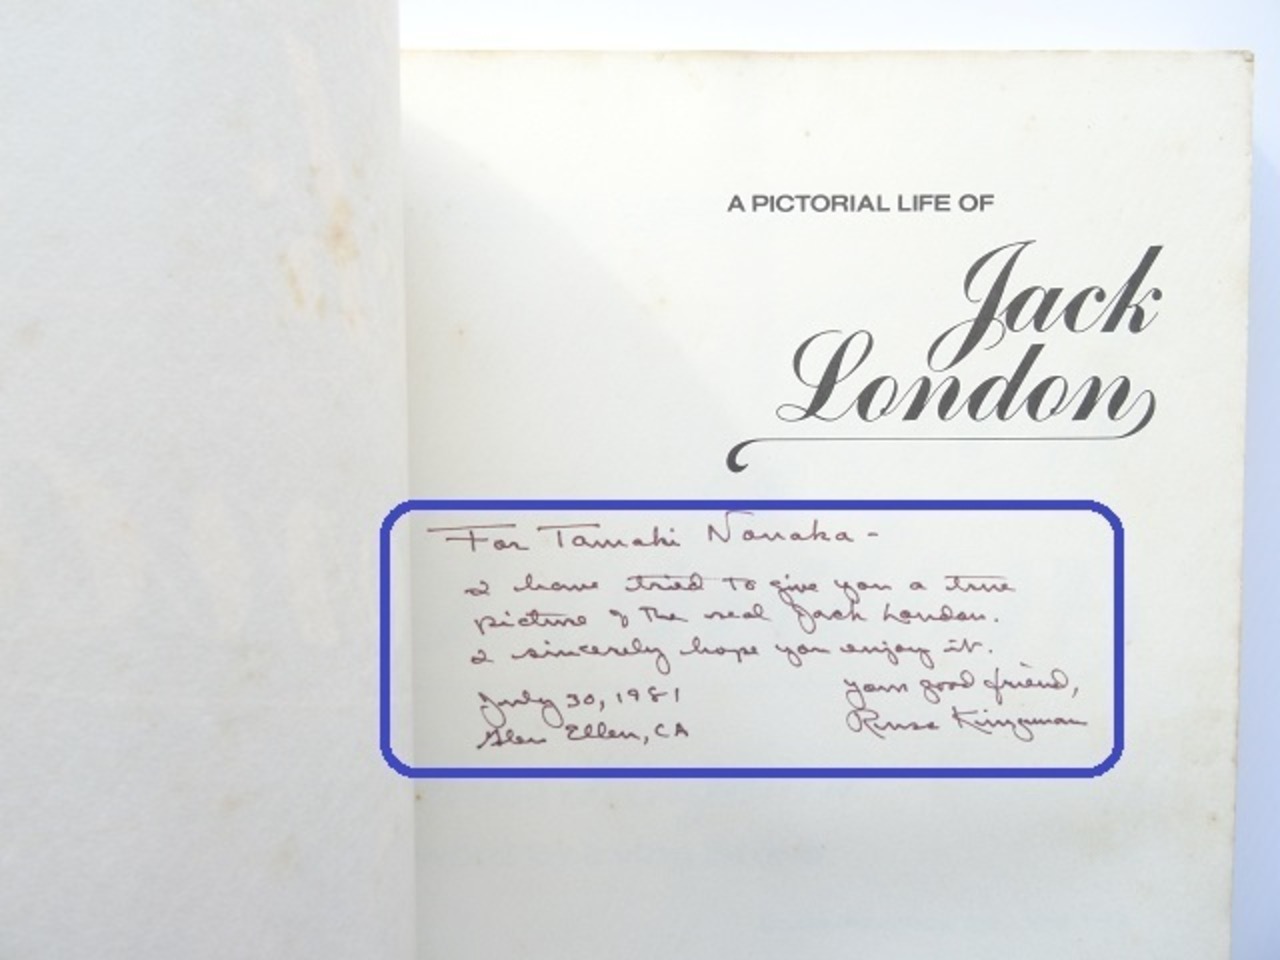 A PICTORIAL LIFE OF
Jack
London
For Tamaki Nonaka -
I have tried to give you a true
picture of the real Jack London.
I sincerely hope you enjoy it.
July 30, 1981
your good friend,
Glen Ellen, CA
Russ Kingman